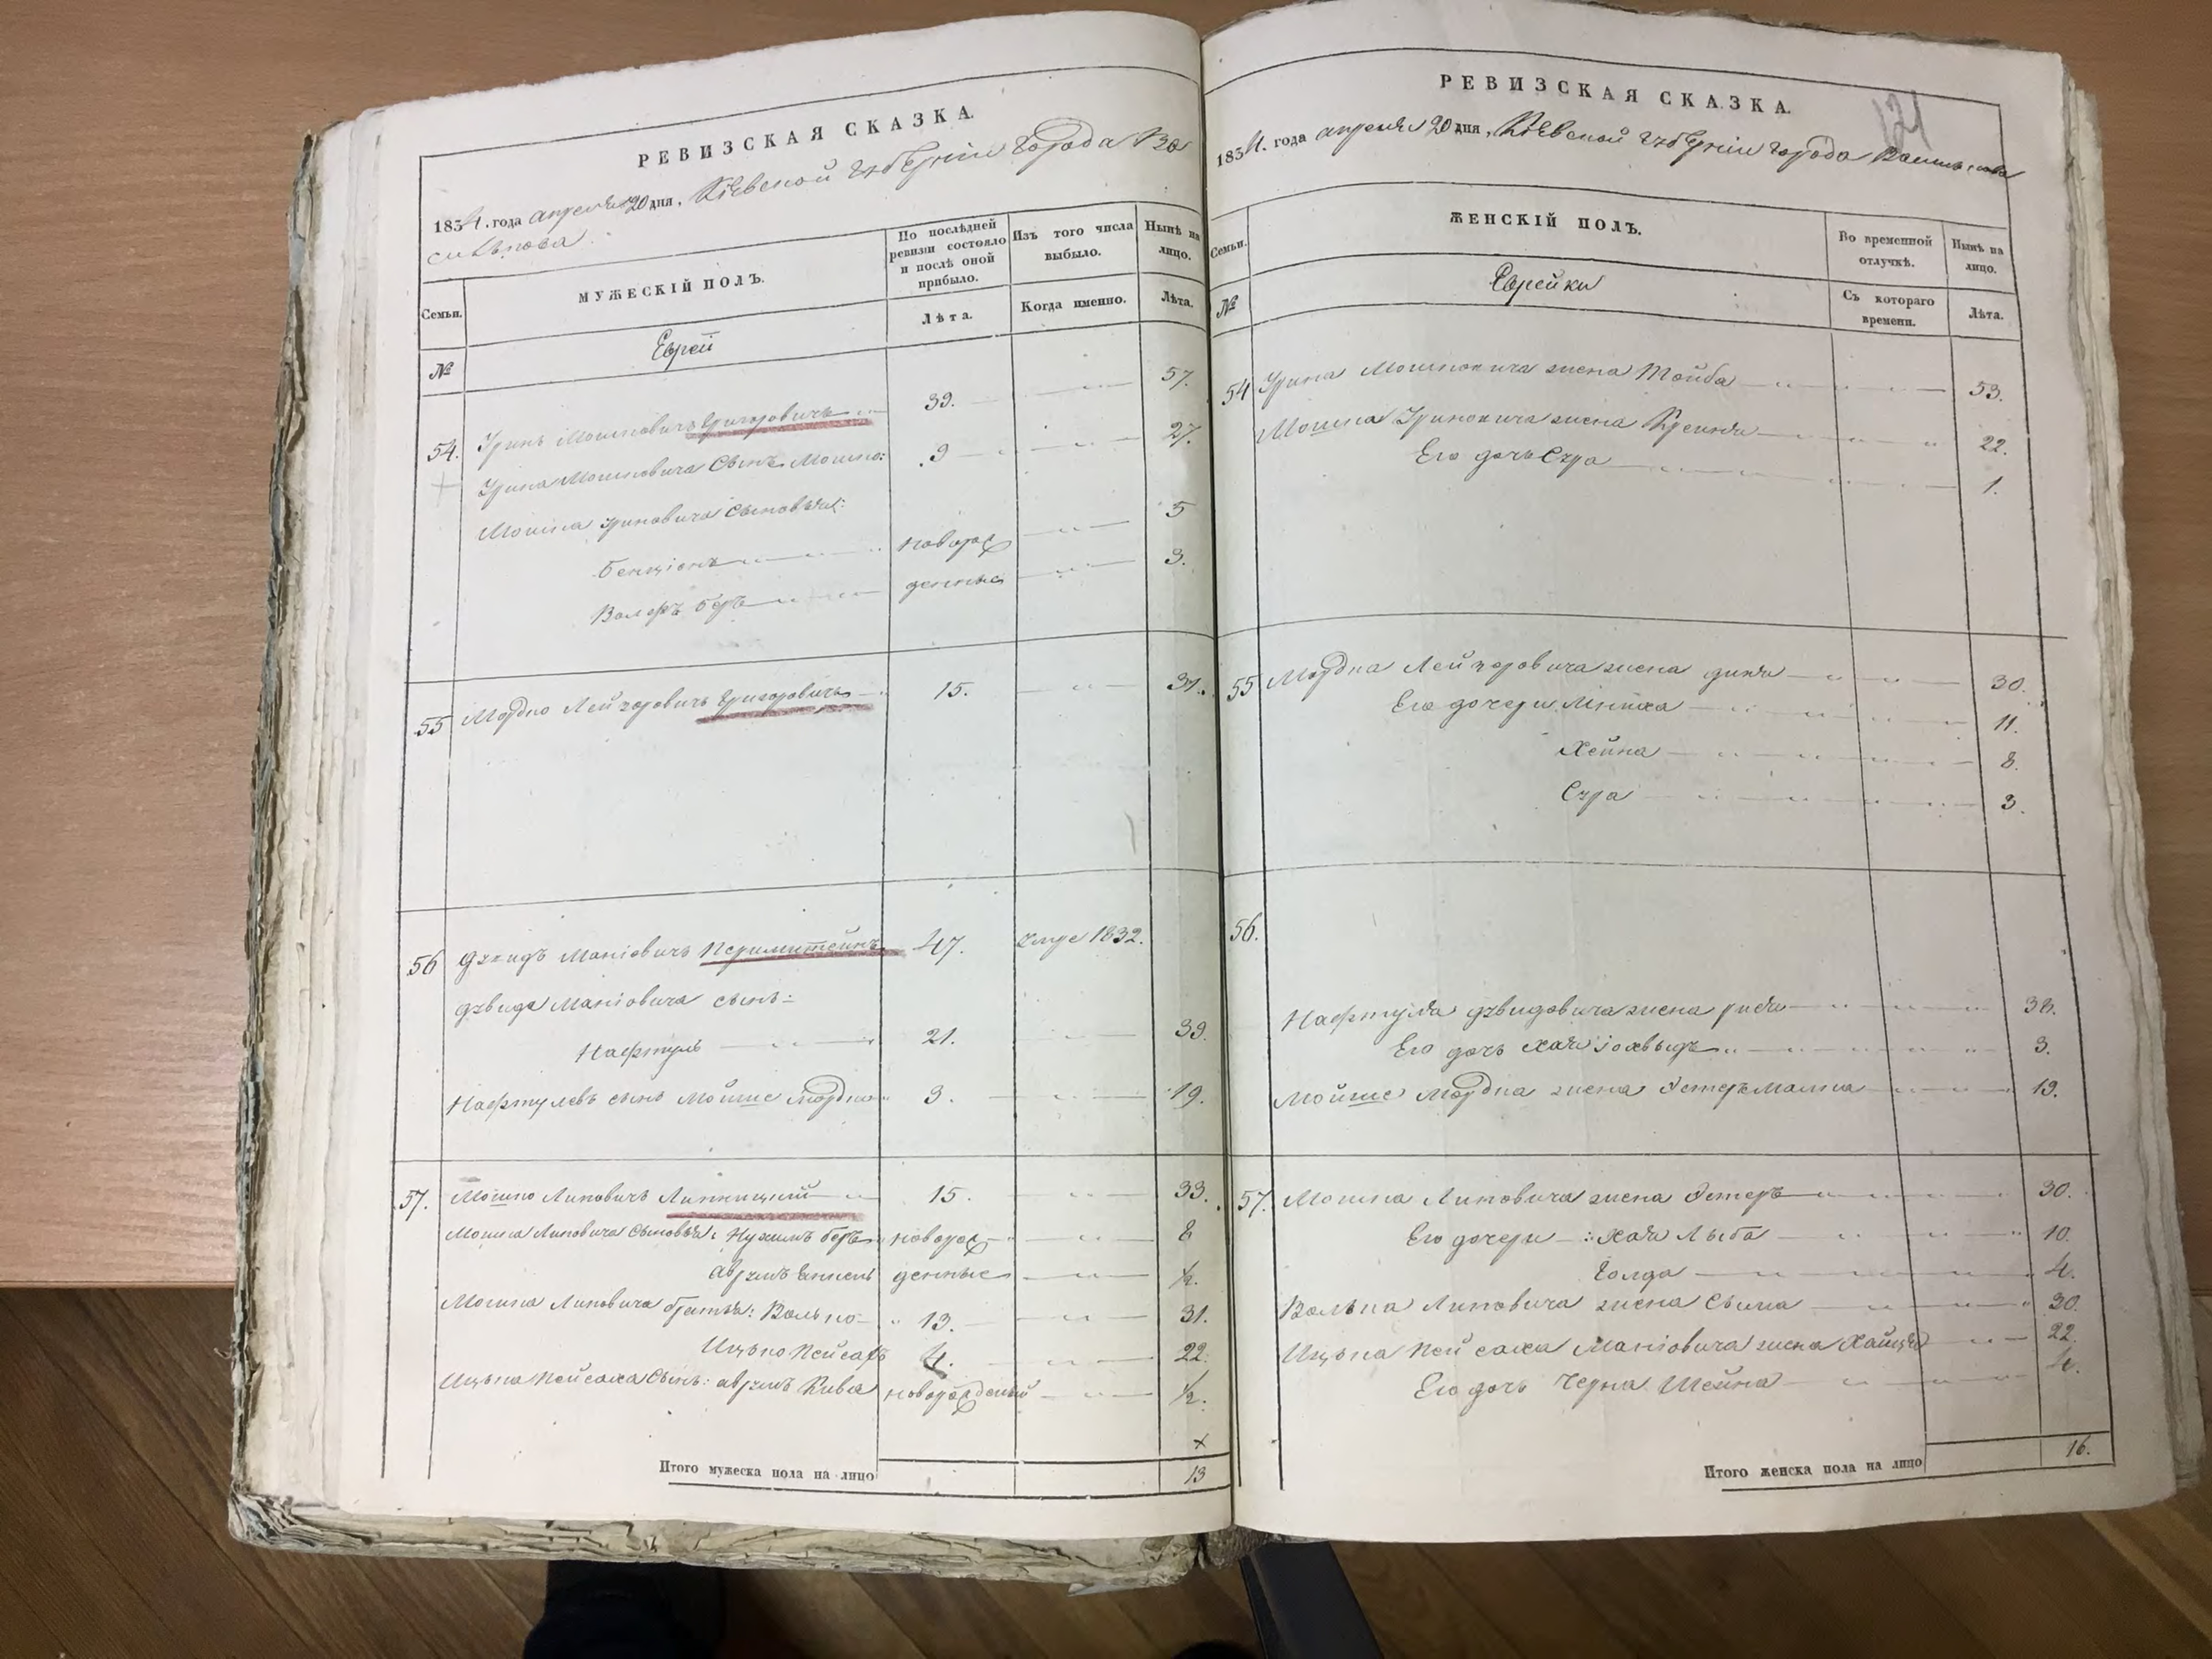 РЕВИЗСКАЯ СКАЗКА.
1854. года апреля 20 дня, Кіевской губерніи города Ва
сильпова
Семьи.
МУЖЕСКІЙ ПОЛЪ.
По послѣдней ревизи состояло и послѣ оной прибыло.
Изъ того числа выбыло.
Нынѣ на лицо.
Лѣта.
Когда именно.
Лѣта.
№
Еврей
54. Сруль Мошковичъ Григоровичъ 39. 57.
Мошковича Сынъ Мошко: 9 27.
Мошка Сыновья:
Бенціонъ новорож 5
Волфъ беръ денные 3.
55 Мордко Лейзоровичъ Григоровичъ 15.
56 Маніовичъ Перлмитейнъ 47. умре 1832.
Маніовича сынъ:
Нафтуль 21. 39.
Нафтулевъ сынъ Мойше Мордко 3. 19.
57. Мошко Липовичъ Липницкий 15. 33.
Мошка Липовича Сыновья: Нухимъ беръ новорож 8
денные 1/2.
Мошка Липовича братья: Волько 13. 31.
Ицько Пейсахъ 4. 22.
Ицька Пейсаха Сынъ: аврумъ Кива новорожденый 1/2.
Итого мужеска пола на лицо 13
РЕВИЗСКАЯ СКАЗКА.
121
1854. года апреля 20 дня, Кіевской губерніи города
Семьи.
ЖЕНСКІЙ ПОЛЪ.
Во временной отлучкѣ.
Нынѣ на лицо.
№
Еврейки
Съ котораго времени.
Лѣта.
54 Мошковича жена Тойба 53.
Мошка жена Крейндя 22.
Его дочь Сура 1.
55 Мордка Лейзоровича жена 30.
Его дочери 11.
Хейна 8.
Сура 3.
56.
Нафтуля жена 38.
Его дочь Хая іохвыдъ 3.
Мойше Мордка жена Эстеръ Малка 19.
57. Мошка Липовича жена Эстеръ 30.
Его дочери: Хая Лыба 10.
Голда 4.
Волька Липовича жена Сыма 30.
Ицька Пейсаха Маніовича жена 22.
Его дочь Черна Шейна 4.
Итого женска пола на лицо 16.